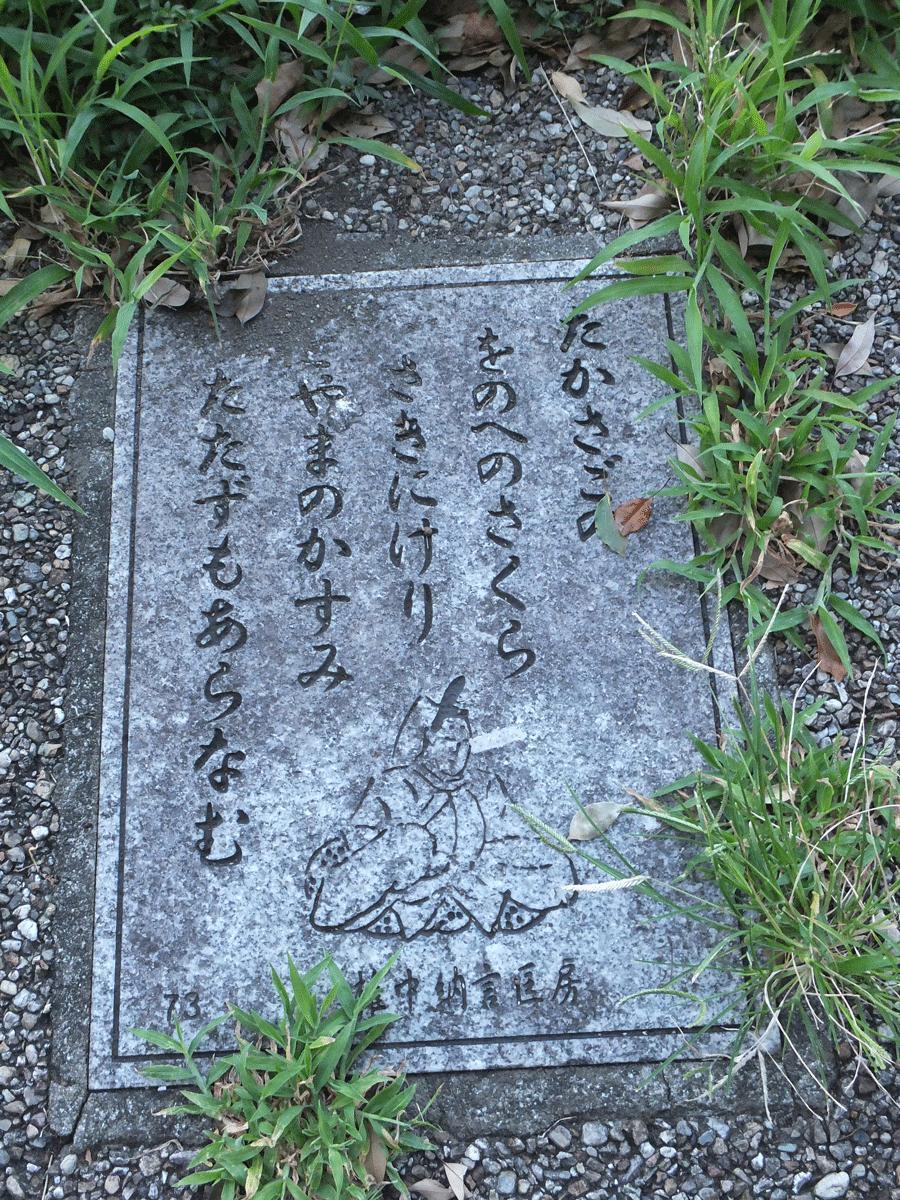 たかさごの
をのへのさくら
さきにけり
やまのかすみ
たたずもあらなむ
権中納言匡房
73